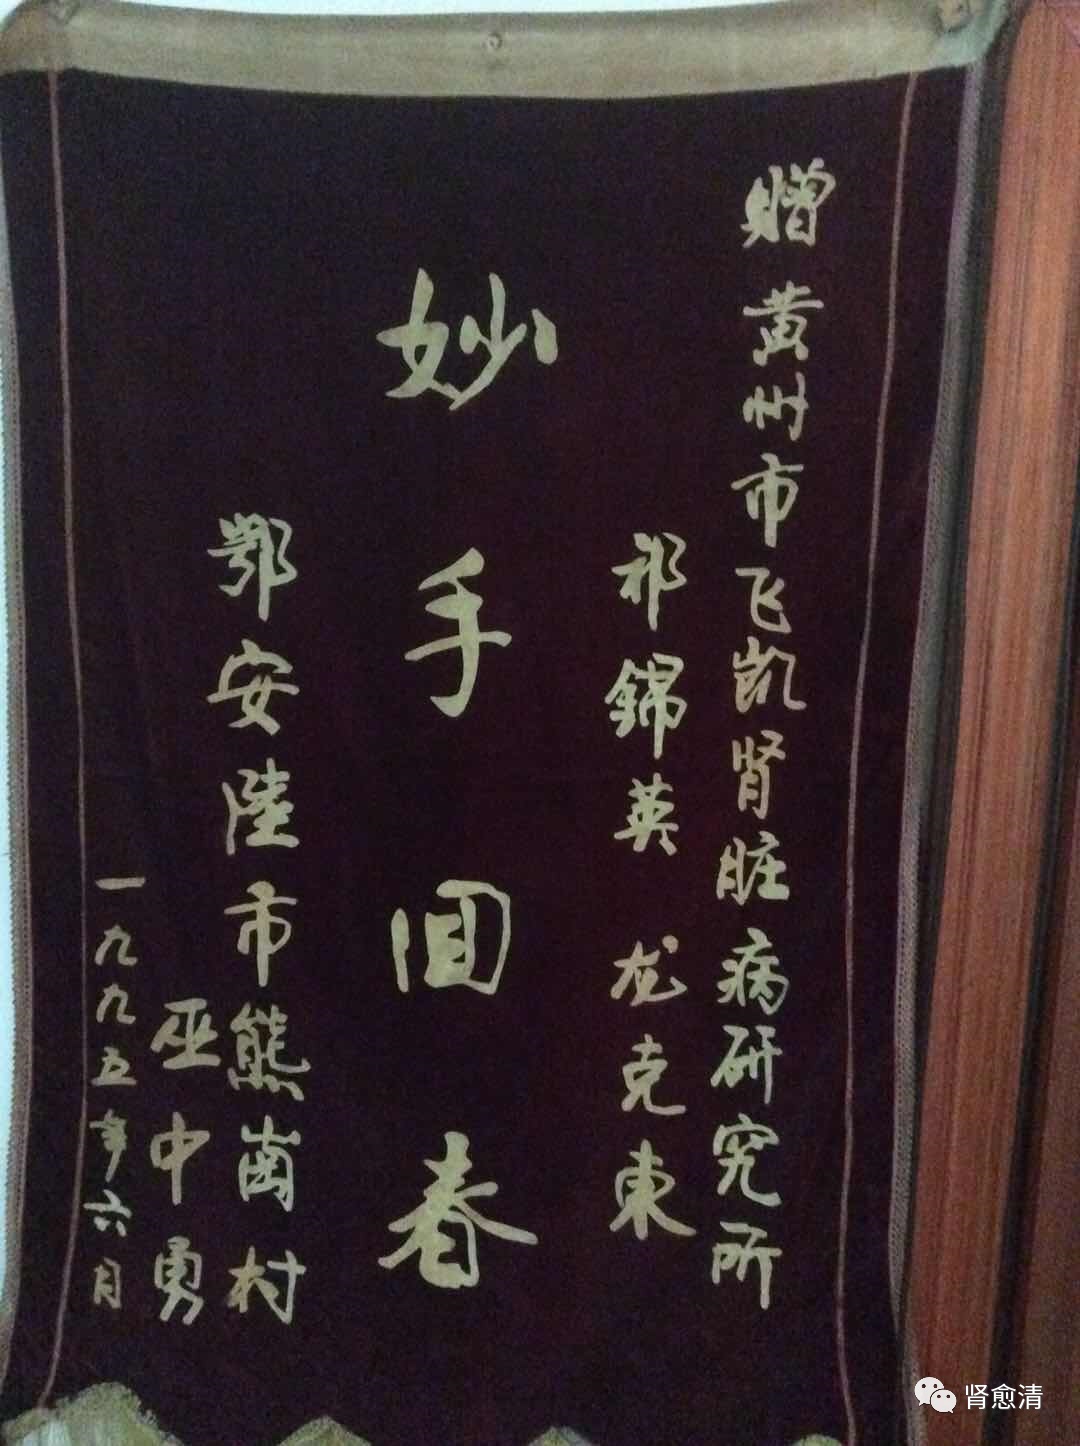 赠黄州市飞凯肾脏病研究所
祁錦英 龙克東
妙手回春
鄂安陸市熊岗村
巫中勇
一九九五年六月
肾愈清